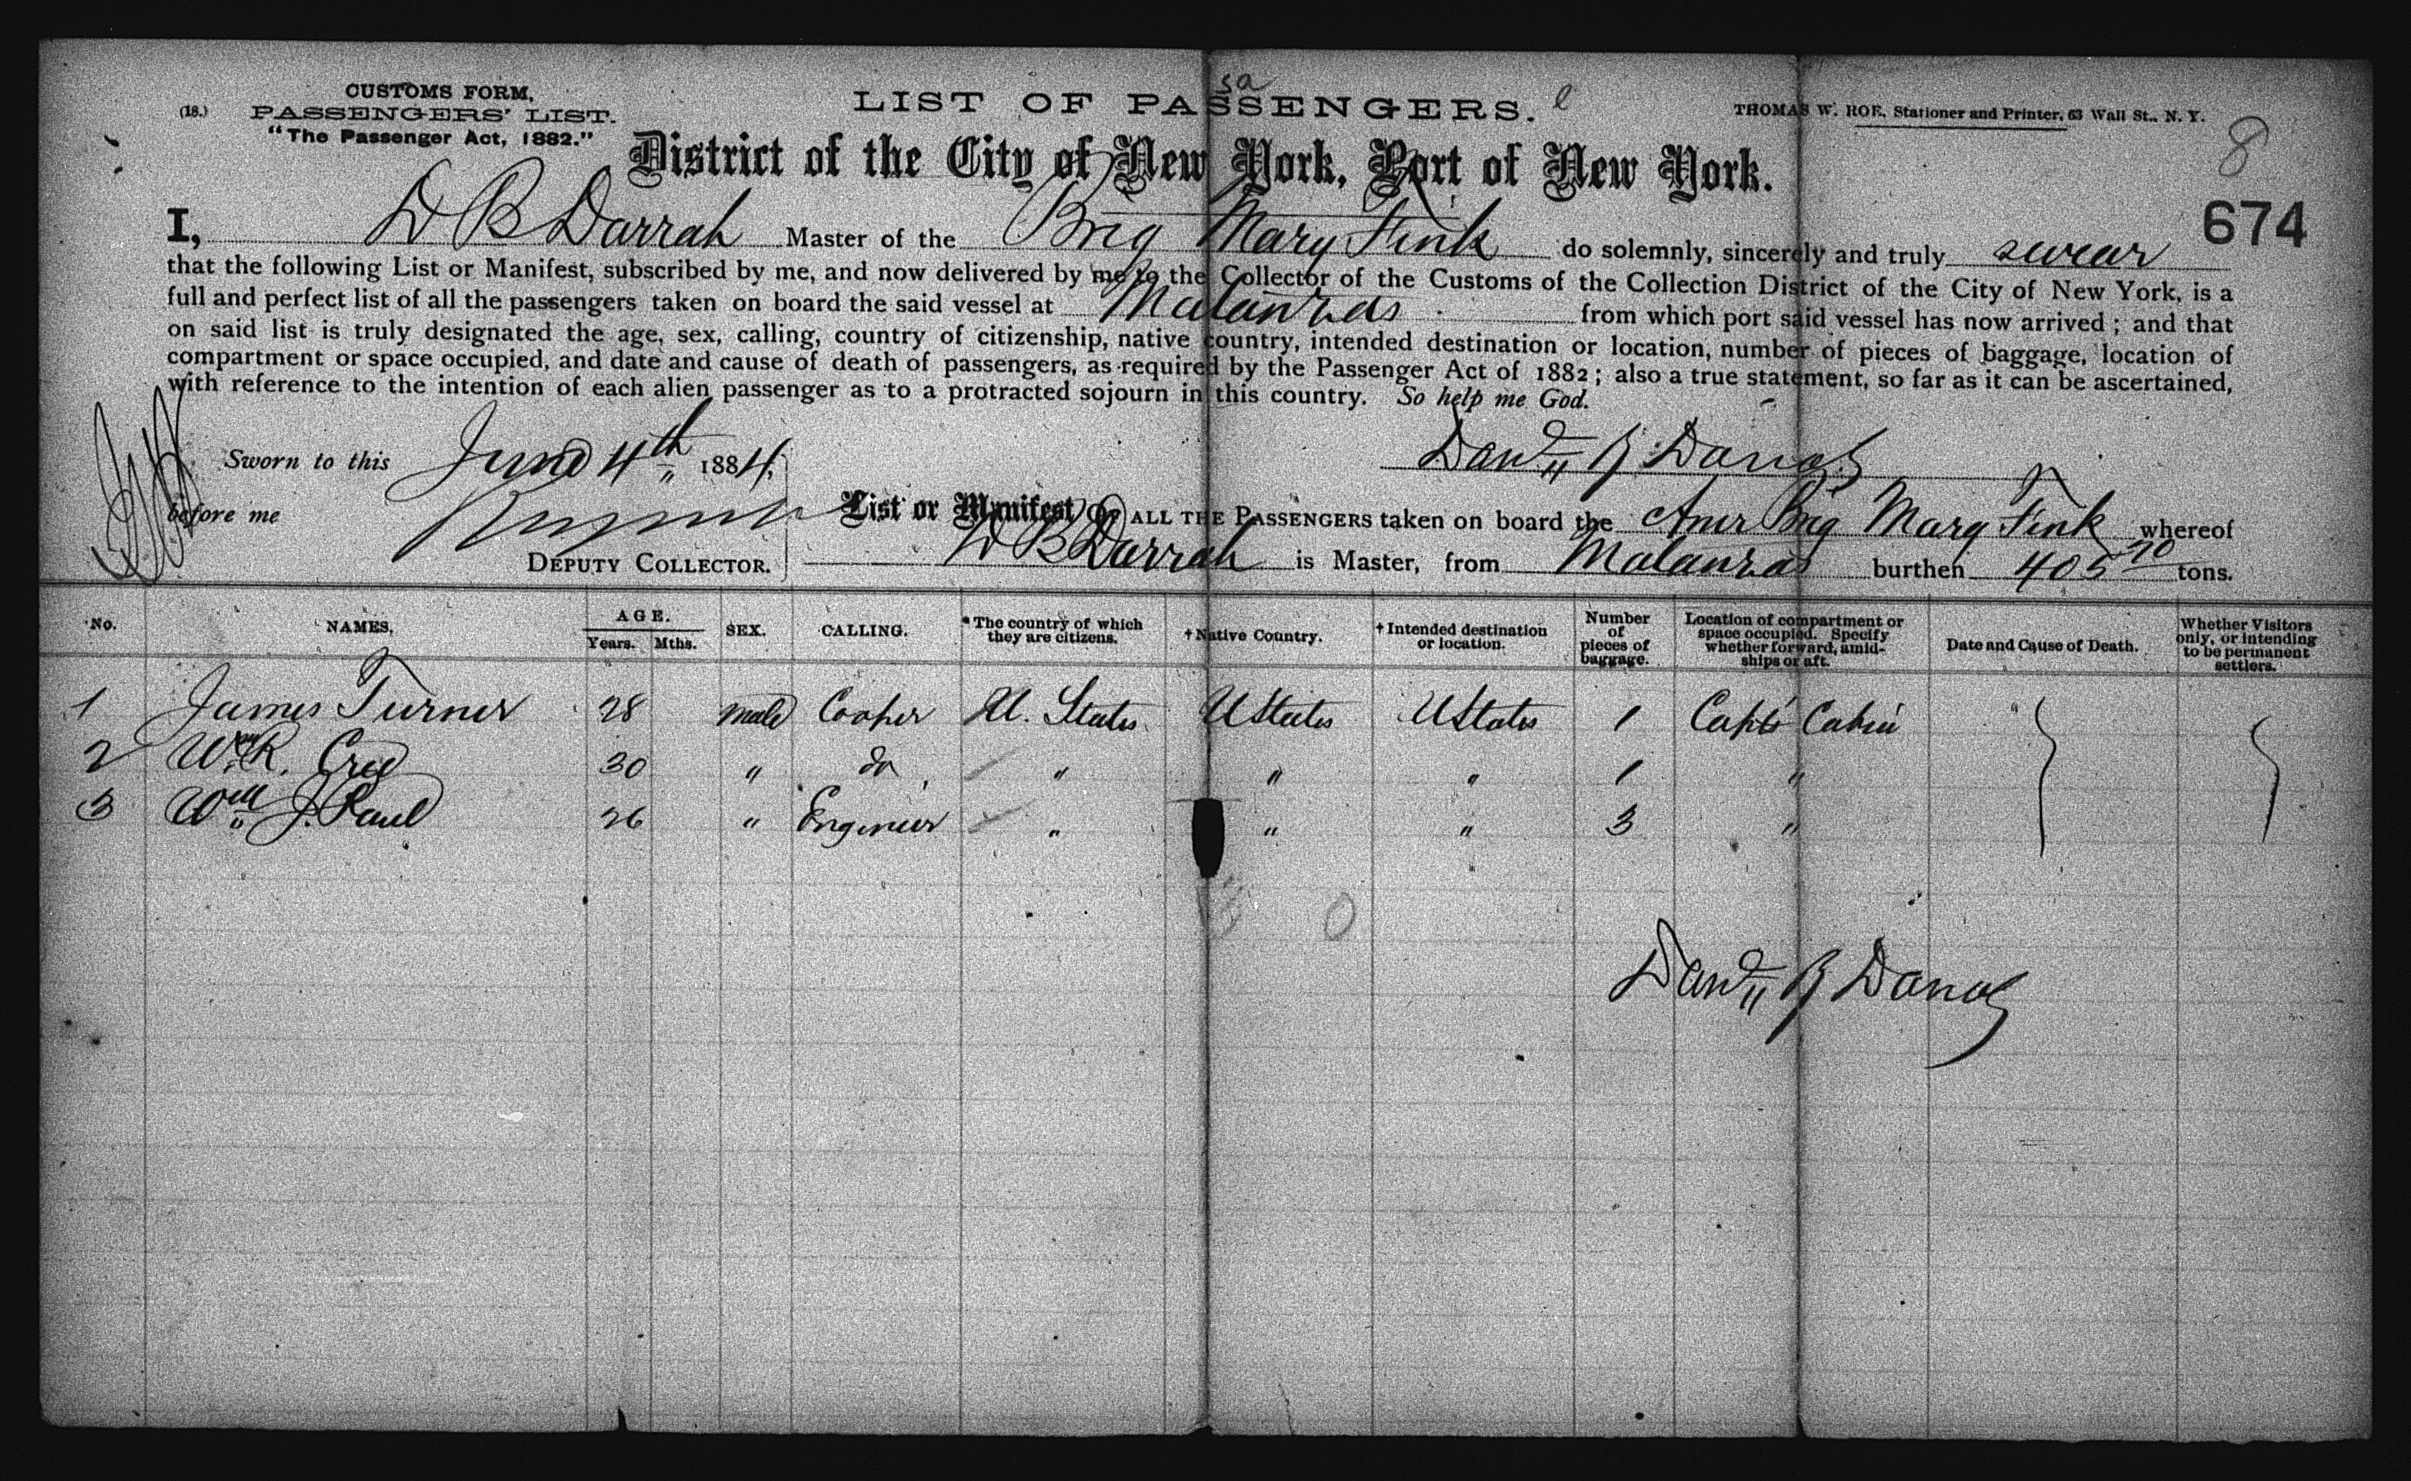 sa
CUSTOMS FORM,
(18.) PASSENGERS' LIST.
"The Passenger Act, 1882."
LIST OF PASSENGERS.
THOMAS W. ROE, Stationer and Printer, 63 Wall St., N. Y.
8
District of the City of New York, Port of New York.
674
I, D B Darrah Master of the Brig Mary Fink do solemnly, sincerely and truly swear
that the following List or Manifest, subscribed by me, and now delivered by me to the Collector of the Customs of the Collection District of the City of New York, is a
full and perfect list of all the passengers taken on board the said vessel at Matanzas from which port said vessel has now arrived; and that
on said list is truly designated the age, sex, calling, country of citizenship, native country, intended destination or location, number of pieces of baggage, location of
compartment or space occupied, and date and cause of death of passengers, as required by the Passenger Act of 1882; also a true statement, so far as it can be ascertained,
with reference to the intention of each alien passenger as to a protracted sojourn in this country. So help me God.
Sworn to this June 4th 1884
David B Darrah
before me
DEPUTY COLLECTOR.
List or Manifest OF ALL THE PASSENGERS taken on board the Amr Brig Mary Fink whereof
D B Darrah is Master, from Matanzas burthen 405 70 tons.
No. NAMES. AGE. Years. Mths. SEX. CALLING. *The country of which they are citizens. †Native Country. †Intended destination or location. Number of pieces of baggage. Location of compartment or space occupied. Specify whether forward, amidships or aft. Date and Cause of Death. Whether Visitors only, or intending to be permanent settlers.
1 James Turner 28 male Cooper U. States U States U States 1 Capts Cabin
2 Wm R. Cree 30 " do " " " 1 "
3 Wm J. Paul 26 " Engineer " " " 3 "
0
David B Darrah